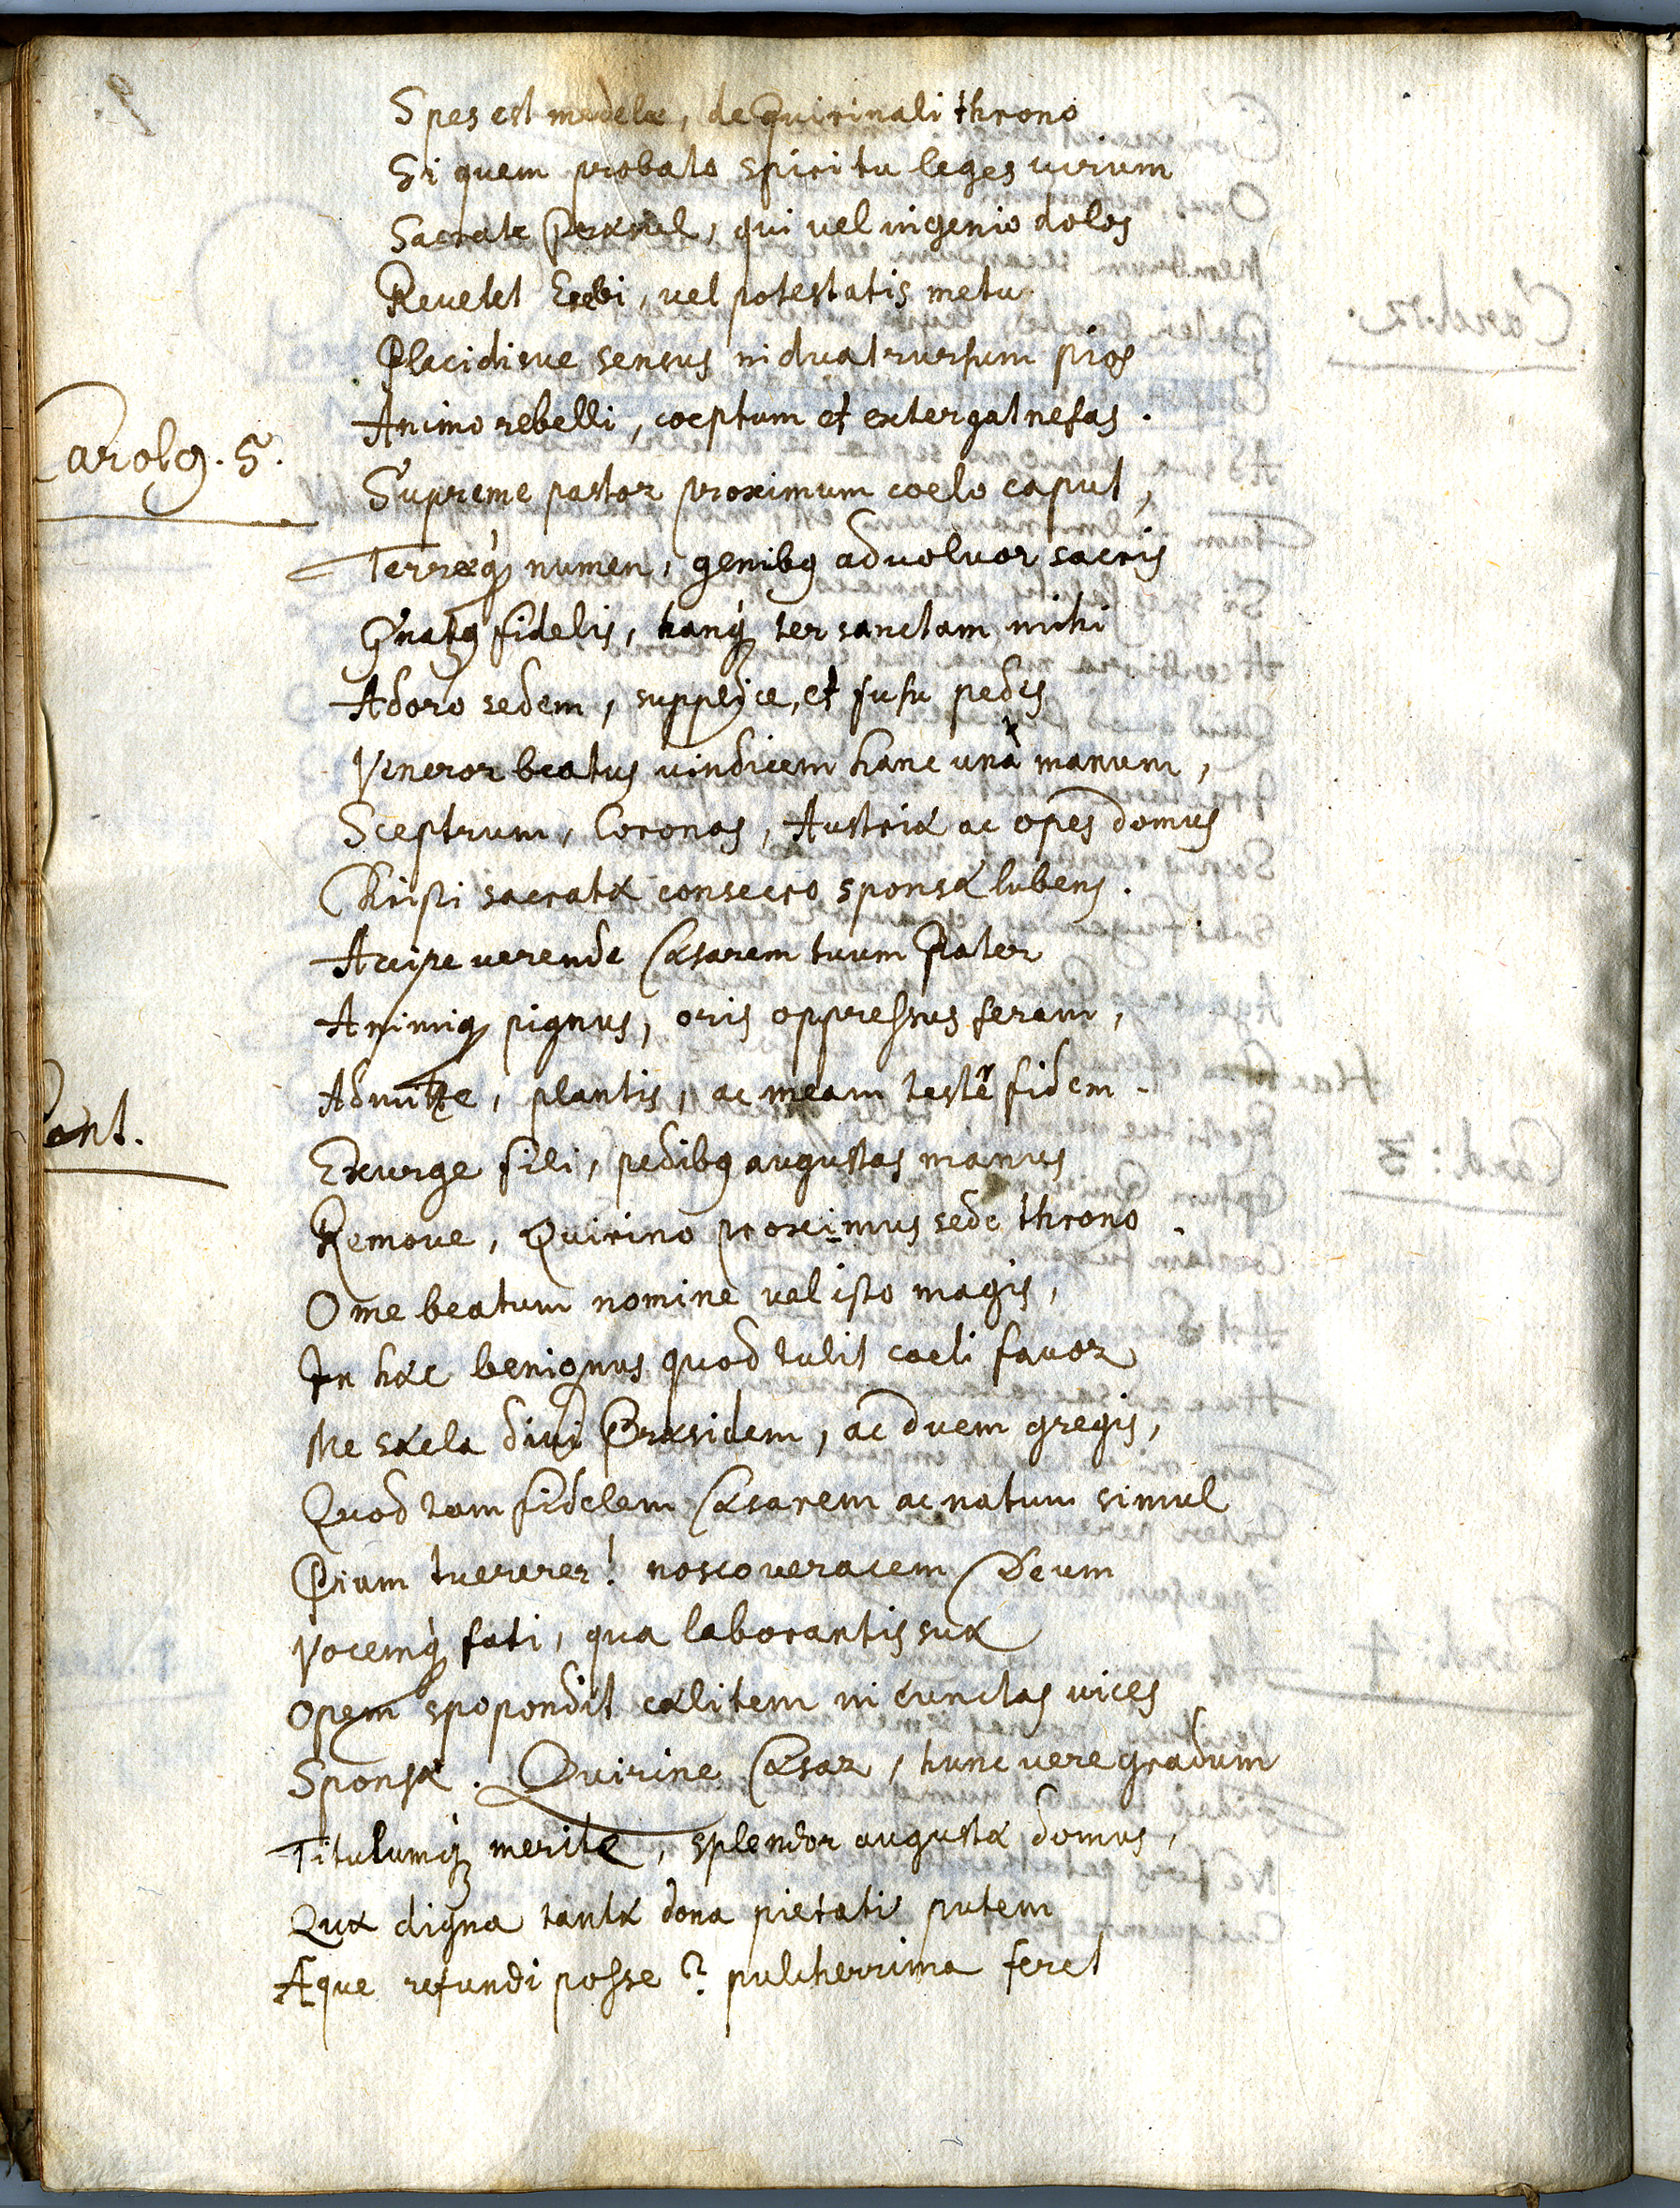 Spes est medelæ, de Quirinali throno
Si quem probato spiritu leges virum
Sacrate Præsul, qui vel ingenio dolos
Revelet Erebi, vel potestatis metu
Placidisue sensus induat rursum pios
Animo rebelli, coeptum et extergat nefas.
Carolꝰ. 5.
Supreme pastor proximum coelo caput,
Terræq́ꝫ numen, genibꝰ advolvor sacris
Gnatꝰ fidelis, hanq́ꝫ ter sanctam mihi
Adoro sedem, supplice, et fusu pedis
Veneror beatus vindicem hanc unà manum,
Sceptrum, Coronas, Austriæ ac opes domus
Christi sacratæ consecro sponsæ lubens.
Accipe verende Cæsarem tuum Pater
Animiqꝫ pignus, oris oppressus feram,
Admitte, plantis, ac meam tester fidem.
Pont.
Exurge fili, pedibꝰ augustas manus
Remove, Quirino proximus sede throno.
O me beatum nomine vel isto magis,
In hæc benignus quod tulit coeli favor
Me sæcla divi Præsidem, ac ducem gregis,
Quod tam fidelem Cæsarem ac natum simul
Pium tuererer! nosco veracem Deum
Vocemq́ꝫ fati, qua laborantis suæ
Opem spopondit cælitem in cunctas vices
Sponsæ. Quirine Cæsar, hunc vere gradum
Titulumq́ꝫ merite, splendor augustæ domus,
Quæ digna tantæ dona pietati putem
Æque refundi posse? pulcherrima feret